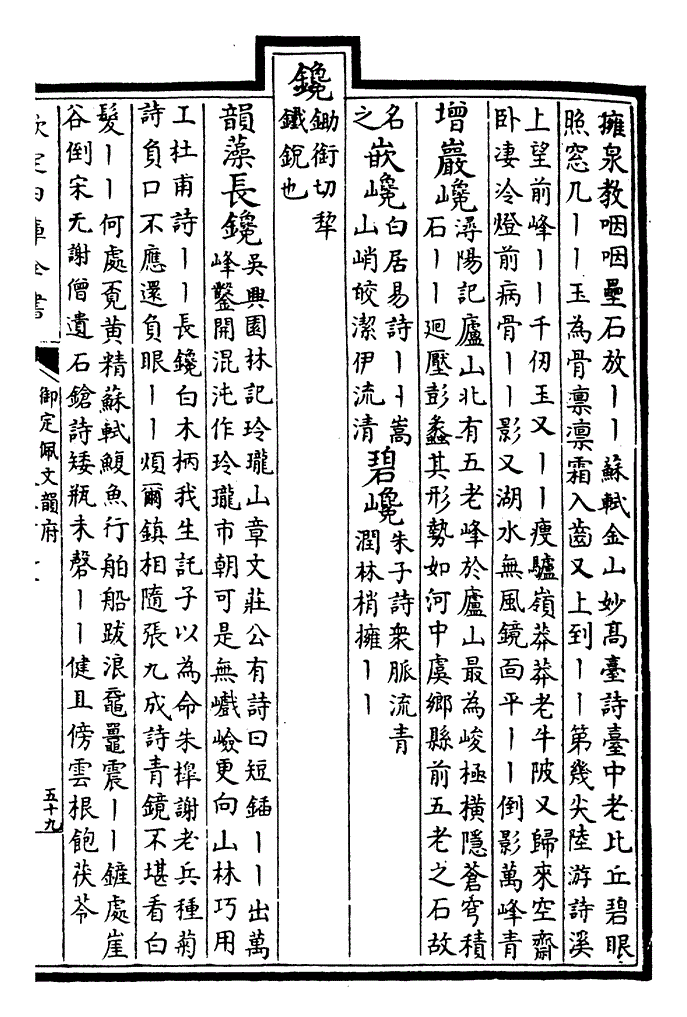 擁泉教咽咽壘石放丨丨蘇軾金山妙髙臺詩臺中老比丘碧眼
照窓几丨丨玉為骨凛凛霜入齒又上到丨丨第幾尖陸游詩溪
上望前峰丨丨千仞玉又丨丨瘦驢嶺莽莽老牛陂又歸來空齋
卧凄冷燈前病骨丨丨影又湖水無風鏡面平丨丨倒影萬峰青
增巖巉潯陽記廬山北有五老峰於廬山最為峻極横隱蒼穹積
石丨丨迥壓彭蠡其形勢如河中虞鄉縣前五老之石故
名
之嵌巉白居易詩丨丨嵩
山峭皎潔伊流清碧巉朱子詩衆脈流青
潤林梢擁丨丨
鑱鋤銜切犂
鐵銳也
韻藻長鑱吳興園林記玲瓏山章文莊公有詩曰短鍤丨丨出萬
峰鑿開混沌作玲瓏市朝可是無巇嶮更向山林巧用
工杜甫詩丨丨長鑱白木柄我生託子以為命朱槔謝老兵種菊
詩負口不應還負眼丨丨煩爾鎮相隨張九成詩青鏡不堪看白
髮丨丨何處覓黄精蘇軾鰒魚行舶船跋浪黿鼉震丨丨鏟處崖
谷倒宋无謝僧遺石鎗詩矮瓶未罄丨丨健且傍雲根飽茯苓
欽定四庫全書
御定佩文韻府
五十九